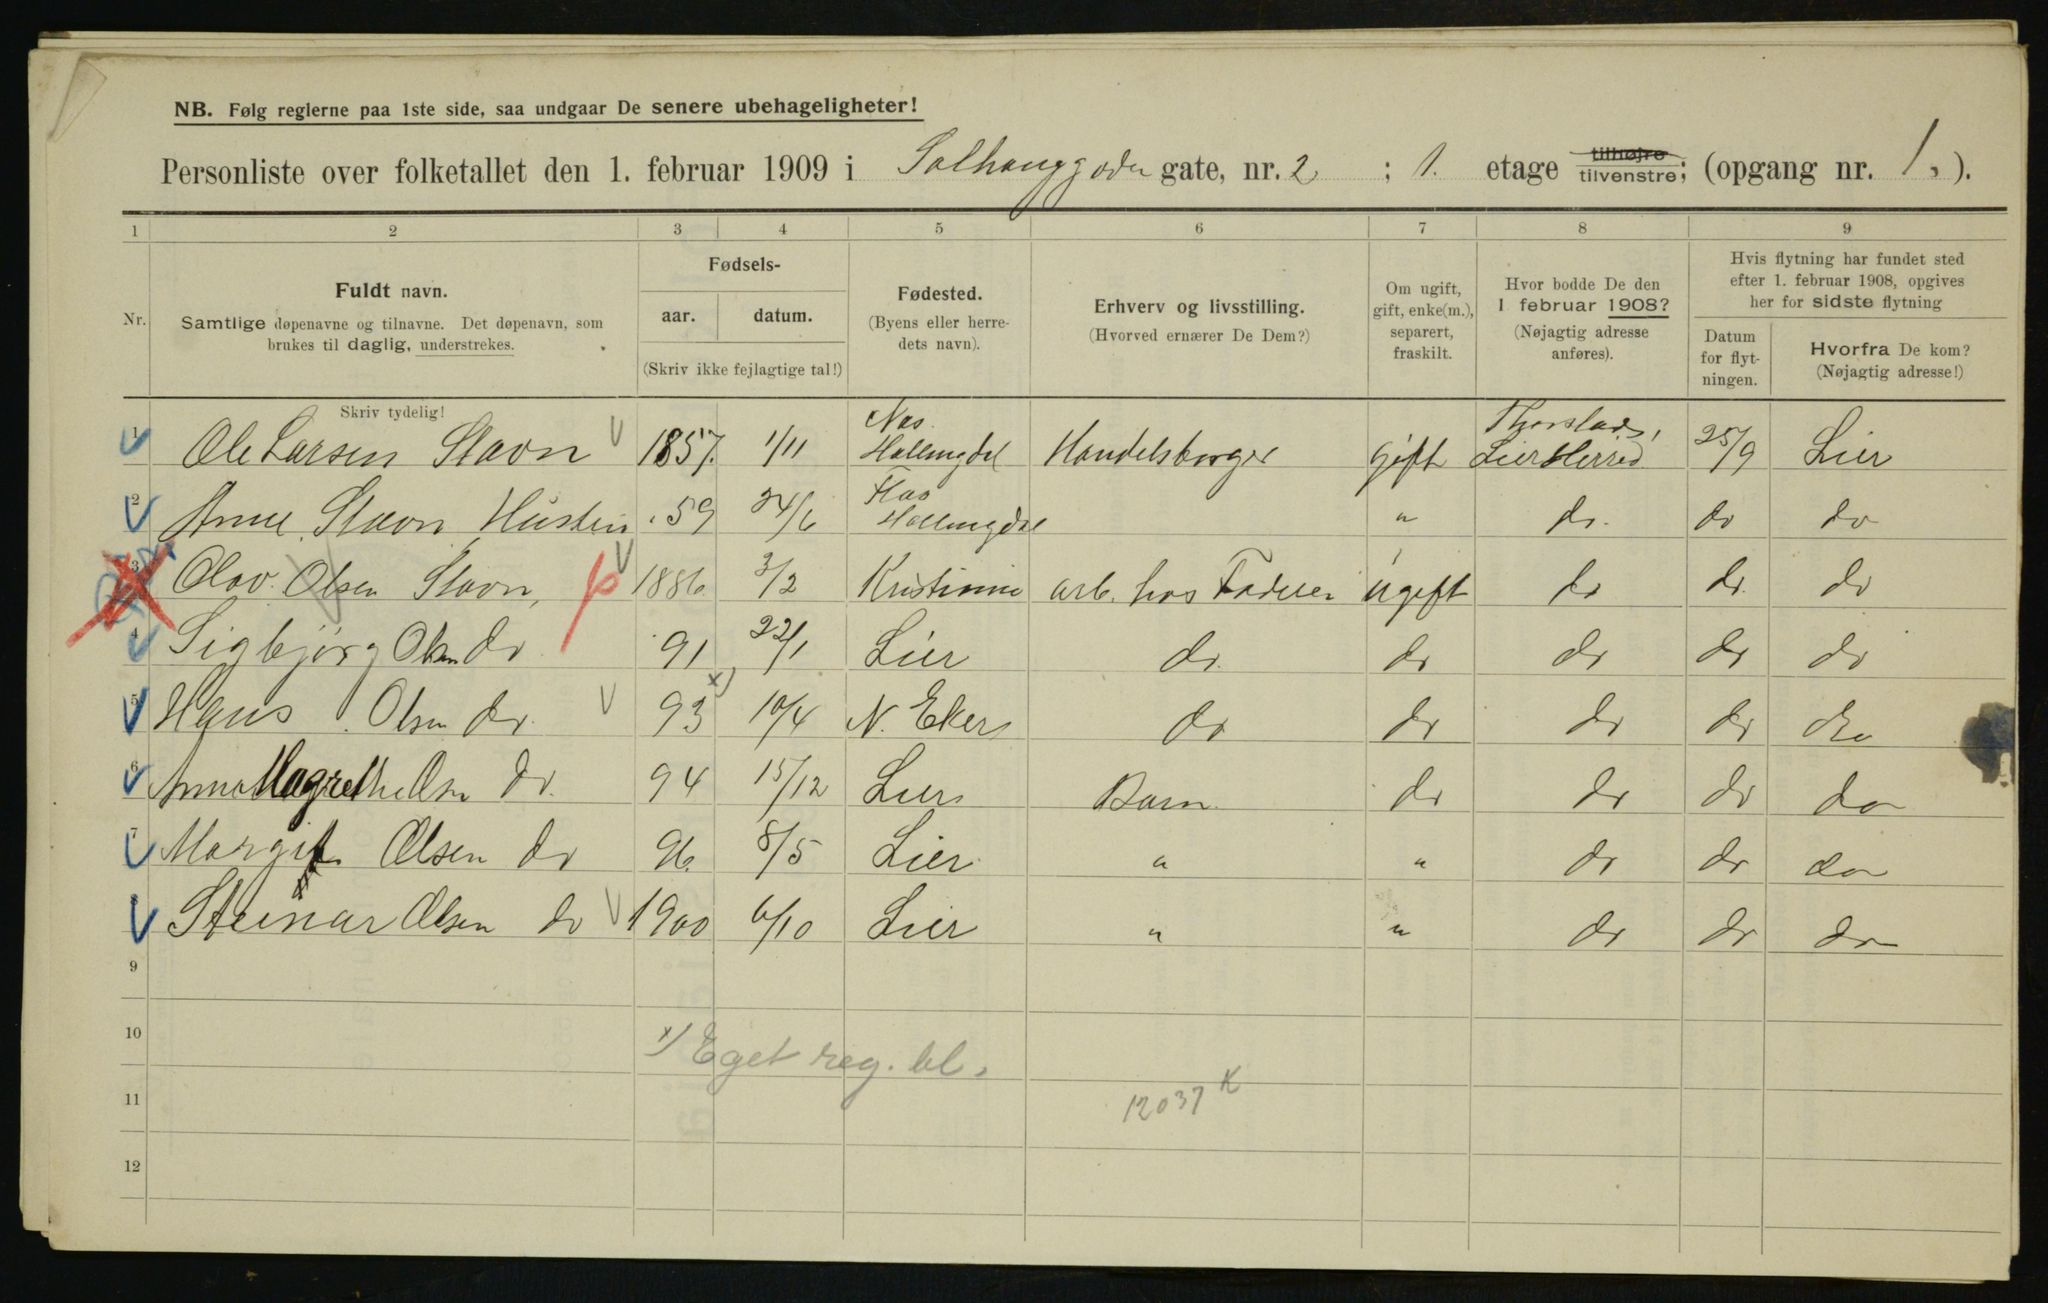 NB. Følg reglerne paa 1ste side, saa undgaar De senere ubehageligheter!
Personliste over folketallet den 1. februar 1909 i Solhauggaden gate, nr. 2 ; 1. etage tilhøjre tilvenstre; (opgang nr. 1, ).
1 2 3 4 5 6 7 8 9
Nr.
Fuldt navn.
Samtlige døpenavne og tilnavne. Det døpenavn, som
brukes til daglig, understrekes.
Skriv tydelig!
Fødsels-
aar. datum.
(Skriv ikke fejlagtige tal!)
Fødested.
(Byens eller herre-
dets navn).
Erhverv og livsstilling.
(Hvorved ernærer De Dem?)
Om ugift,
gift, enke(m.),
separert,
fraskilt.
Hvor bodde De den
1 februar 1908?
(Nøjagtig adresse
anføres).
Hvis flytning har fundet sted
efter 1. februar 1908, opgives
her for sidste flytning
Datum
for flyt-
ningen.
Hvorfra De kom?
(Nøjagtig adresse!)
1 Ole Larsen Stavn 1857. 1/11 Nas. Hallingdal Handelsborger gift Lier Herred 25/9 Lier
2 Anne Stavn Hustru 59 24/6 Hallingdal " do. do do
3 Olav Olsen Stavn, 1886 3/2 Kristiania arb. hos Faderen Ugift do do do
4 Sigbjørg Olsen do 91 22/1 Lier do. do do do do
5 Hans Olsen do. 93 x) 10/4 N. Eker do do do do do
6 Anna Magrethe Olsn do. 94 15/12 Lier Barn do do do do
7 Margit Olsen do 96. 8/5 Lier " " do do do
8 Steinar Olsen do 1900 6/10 Lier " " do do do
9
10
x) Eget reg. bl.
11
12037 K
12